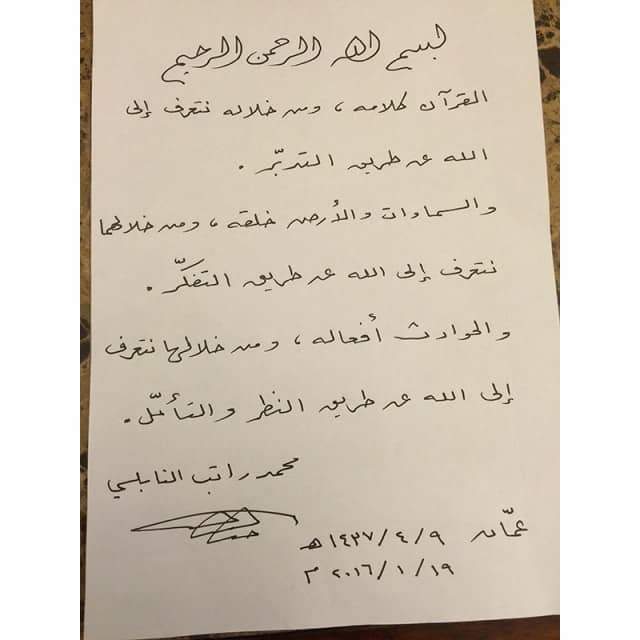 بسم الله الرحمن الرحيم
القرآن كلامه ، ومن خلاله نتعرف إلى
الله عن طريق التدبّر .
والسماوات والأرض خلقه ، ومن خلالهما
نتعرف إلى الله عن طريق التفكّر .
والحوادث أفعاله ، ومن خلالها نتعرف
إلى الله عن طريق النظر والتأمّل .
محمد راتب النابلسي
عمّان ٩ / ٤ / ١٤٣٧ هـ
١٩ / ١ / ٢٠١٦ م